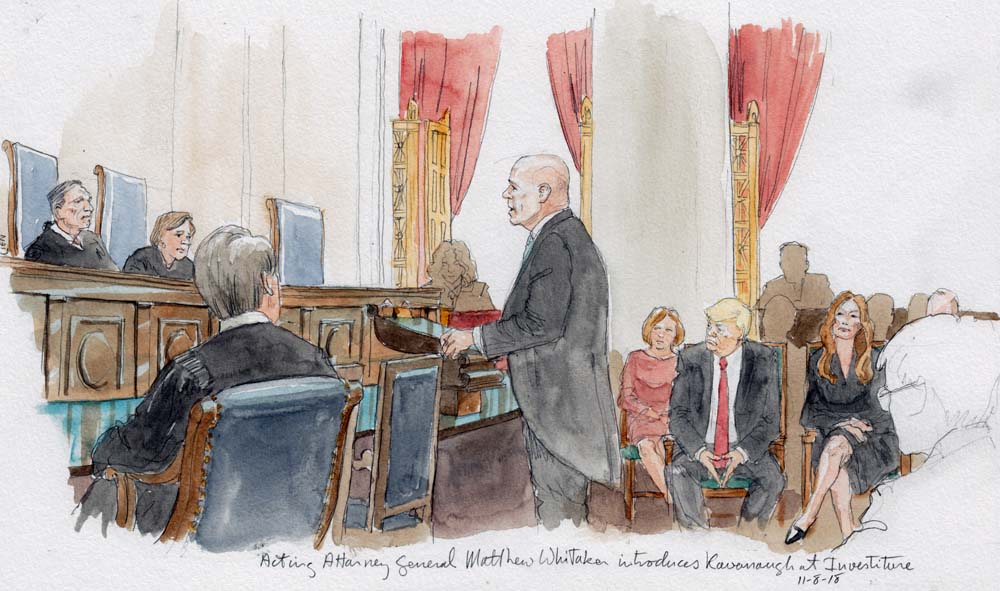 Acting Attorney General Matthew Whitaker introduces Kavanaugh at Investiture
11-8-18